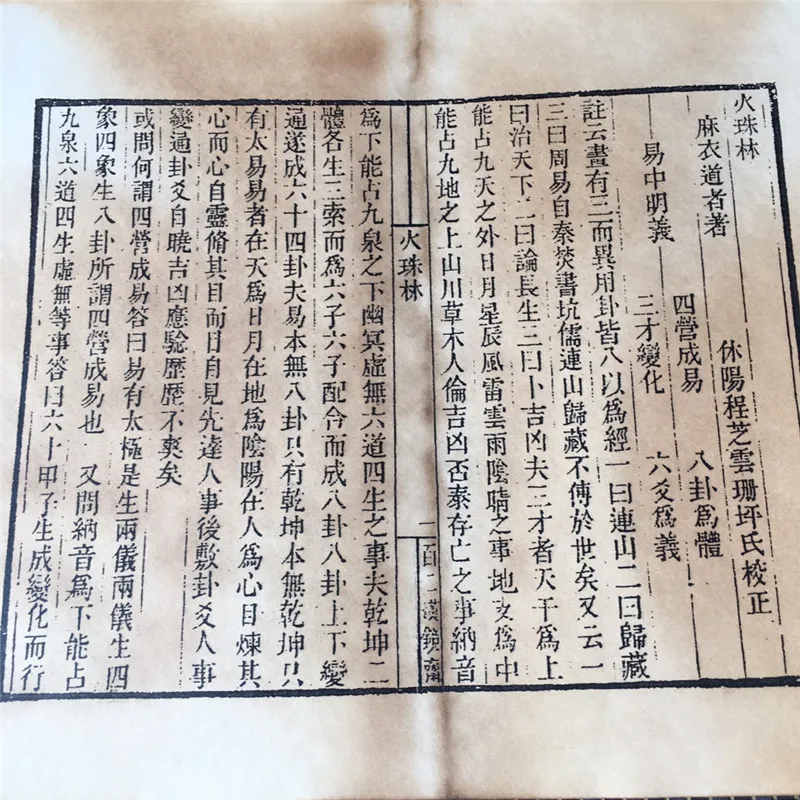 火珠林
麻衣道者著
休陽程芝雲珊坪氏校正
易中明義
四營成易
八卦為體
三才變化
六爻為義
註云書有三而異用卦皆八以為經一曰連山二曰歸藏
三曰周易自秦焚書坑儒連山歸藏不傳於世矣又云一
曰治天下二曰論長生三曰卜吉凶夫三才者天干為上
能占九天之外日月星辰風雷雲雨陰晴之事地支為中
能占九地之上山川草木人倫吉凶否泰存亡之事納音
火珠林
一
百二漢鏡齋
為下能占九泉之下幽冥虛無六道四生之事夫乾坤二
體各生三索而為六子六子配合而成八卦八卦上下變
通遂成六十四卦夫易本無八卦只有乾坤本無乾坤只
有太易易者在天為日月在地為陰陽在人為心目煉其
心而心自靈脩其目而目自見先達人事後敷卦爻人事
變通卦爻自曉吉凶應驗歷歷不爽矣
或問何謂四營成易答曰易有太極是生兩儀兩儀生四
象四象生八卦所謂四營成易也 又問納音為下能占
九泉六道四生虛無等事答曰六十甲子生成變化而行